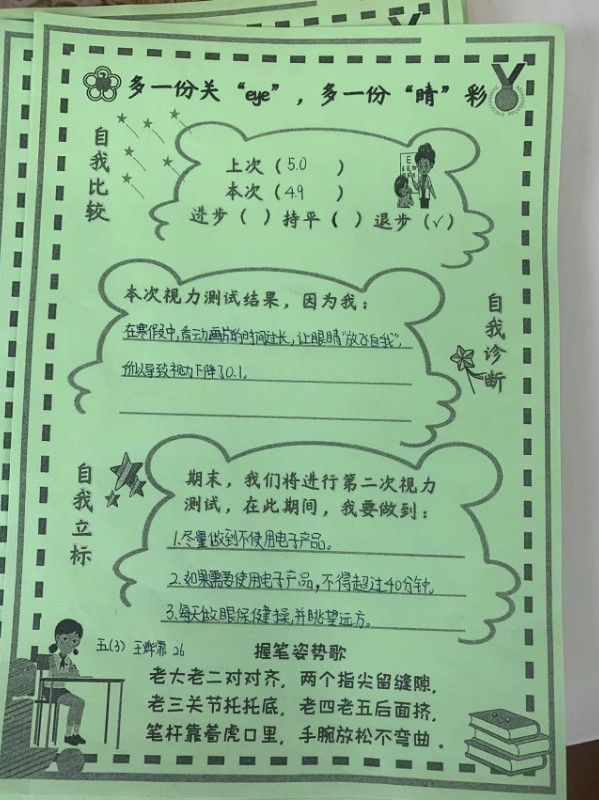 多一份关“eye”，多一份“睛”彩
自我比较
上次（5.0）
本次（4.9）
进步（ ）持平（ ）退步（√）
自我诊断
本次视力测试结果，因为我：
在寒假中，看动画片的时间过长，让眼睛“放飞自我”，
所以导致视力下降了0.1。
自我立标
期末，我们将进行第二次视力
测试，在此期间，我要做到：
1.尽量做到不使用电子产品。
2.如果需要使用电子产品，不得超过40分钟。
3.每天做眼保健操，并眺望远方。
五(3) 王烨霏 26
握笔姿势歌
老大老二对对齐，两个指尖留缝隙，
老三关节托托底，老四老五后面挤，
笔杆靠着虎口里，手腕放松不弯曲。